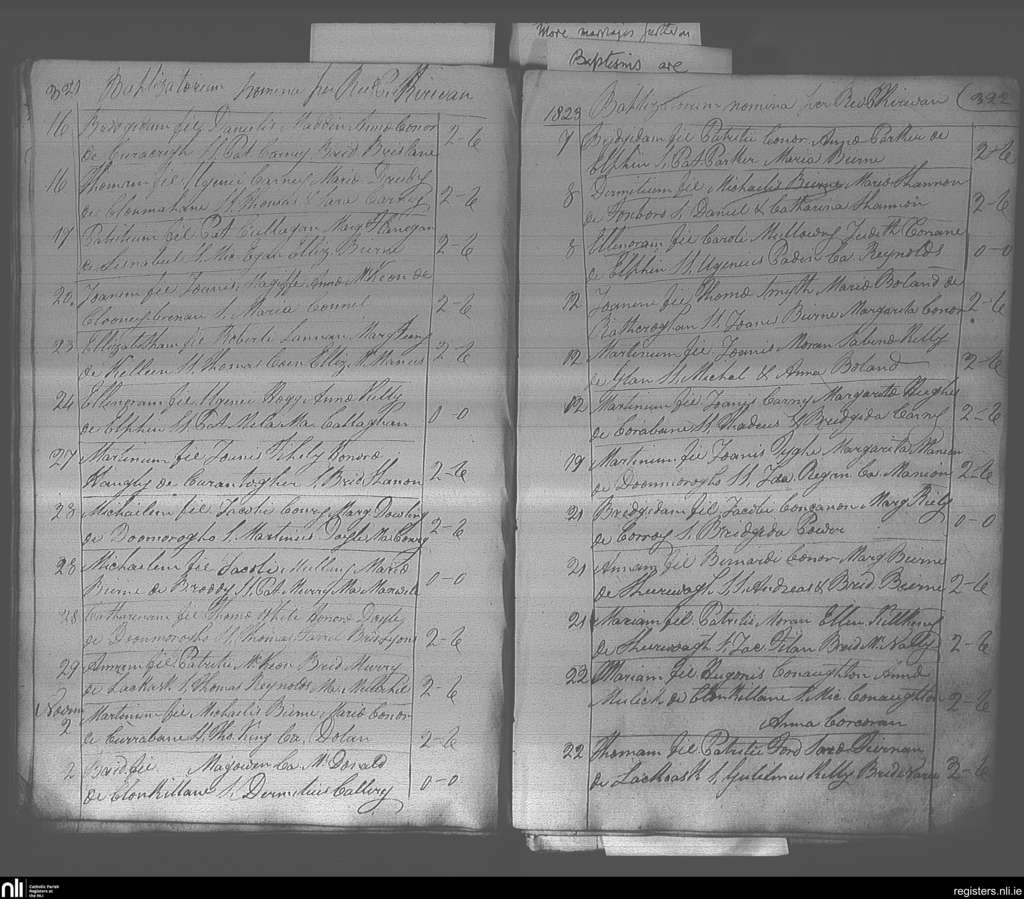 More marriages further on
Baptisms are
321 Baptizatorum nomina per Rev. P. Kirivan
16 Bridgidam fil Danielis Maddin Anna Conor
de Curacrigh SS Pat. Carney Brid Brislane 2-6
16 Thomam fil Ugenii Carney Maria
de Clonmahane SS Thomas & Sara Carney 2-6
17 Patritium fil Pat Callagan Marg Flanegan
de SS Mic Egan Elliz Beirne 2-6
20 Joanem fil Joanis Anna McKeon de
S. Maria Connel 2-6
23 Ellizabetham fil Roberti Lannan Marg
de Killeen SS Thomas Elliz McManus 2-6
24 Ellenoram fil Ugenii Hogg Anna Kelly
de Elphin SS Pat Ma. Callaghan 0-0
27 Martinum fil Joanis Fihely Honora
de S. Brid Shanon 2-6
28 Michaelem fil Jacobi Conry Marg Dowling
de Doomorogho S. Martinus Doyle Ma Conry 2-6
28 Michaelem fil Jacobi Mullany Maria
Bierne de Broddy SS Pat. Murry Ma Maxwell 0-0
28 Catharinam fil Thoma White Honora Doyle
de Doonmorogho SS Thomas 2-6
29 Annam fil Patritii McKeon Brid Murry
de Lackask S. Thomas Reynolds Ma 2-6
Novem
2 Martinum fil Michaelis Bierne Maria Conor
de Currabane SS Tho. King Ca. Dolan 2-6
2 Brid fil Magowen Ca McDonald
de Clonkillane S. Dermitius Callery 0-0
1823 Baptizatorum nomina per Rev P Kirevan (322
7 Bridgidam fil Patritii Conor Anna Parker de
Elphin SS Pat Parker Maria Bierne 2-6
8 Dermitium fil Michaelis Beirne Maria Shannon
de Foxboro S. Daniel & Catharina Shannon 2-6
8 Ellenoram fil Caroli Mullowny Judith Conane
de Elphin SS Ugenius Paden Ca. Reynolds 0-0
12 Joanem fil Thoma Smyth Maria Boland de
Rathcroghan SS Joanis Bierne Margarita Conor 2-6
12 Martinum fil Joanis Moran Sabina Kelly
de Glan SS Michel & Anna Boland 2-6
12 Martinum fil Joanis Carny Margarita Hughes
de Corabane SS Thadeus & Bridgida Carny 2-6
19 Martinum fil Joanis Tyghe Margarita Manion
de Doonmorogho SS Jac Regan Ca Manion 2-6
21 Bredgidam fil Jacobi Concanon Marg Kiely
de Corroy S. Bridgida Power 0-0
21 Annam fil Bernardi Conor Marg Bierne
de Shurewagh SS Andreas & Brid Bierne 2-6
21 Mariam fil Patritii Moran Ellen
de Shurewagh S. Jac. Filan Brid McNally 2-6
22 Mariam fil Hugonis Conaughton Anna
Mulick de Clonkillane SS Mic. Conaughton 2-6
Anna Corcoran
22 Thomam fil Patritii Ford Sara Tiernan
de Lackask S. Gulielmus Kelly Brid 2-6
nli Catholic Parish
Registers at
the NLI
registers.nli.ie